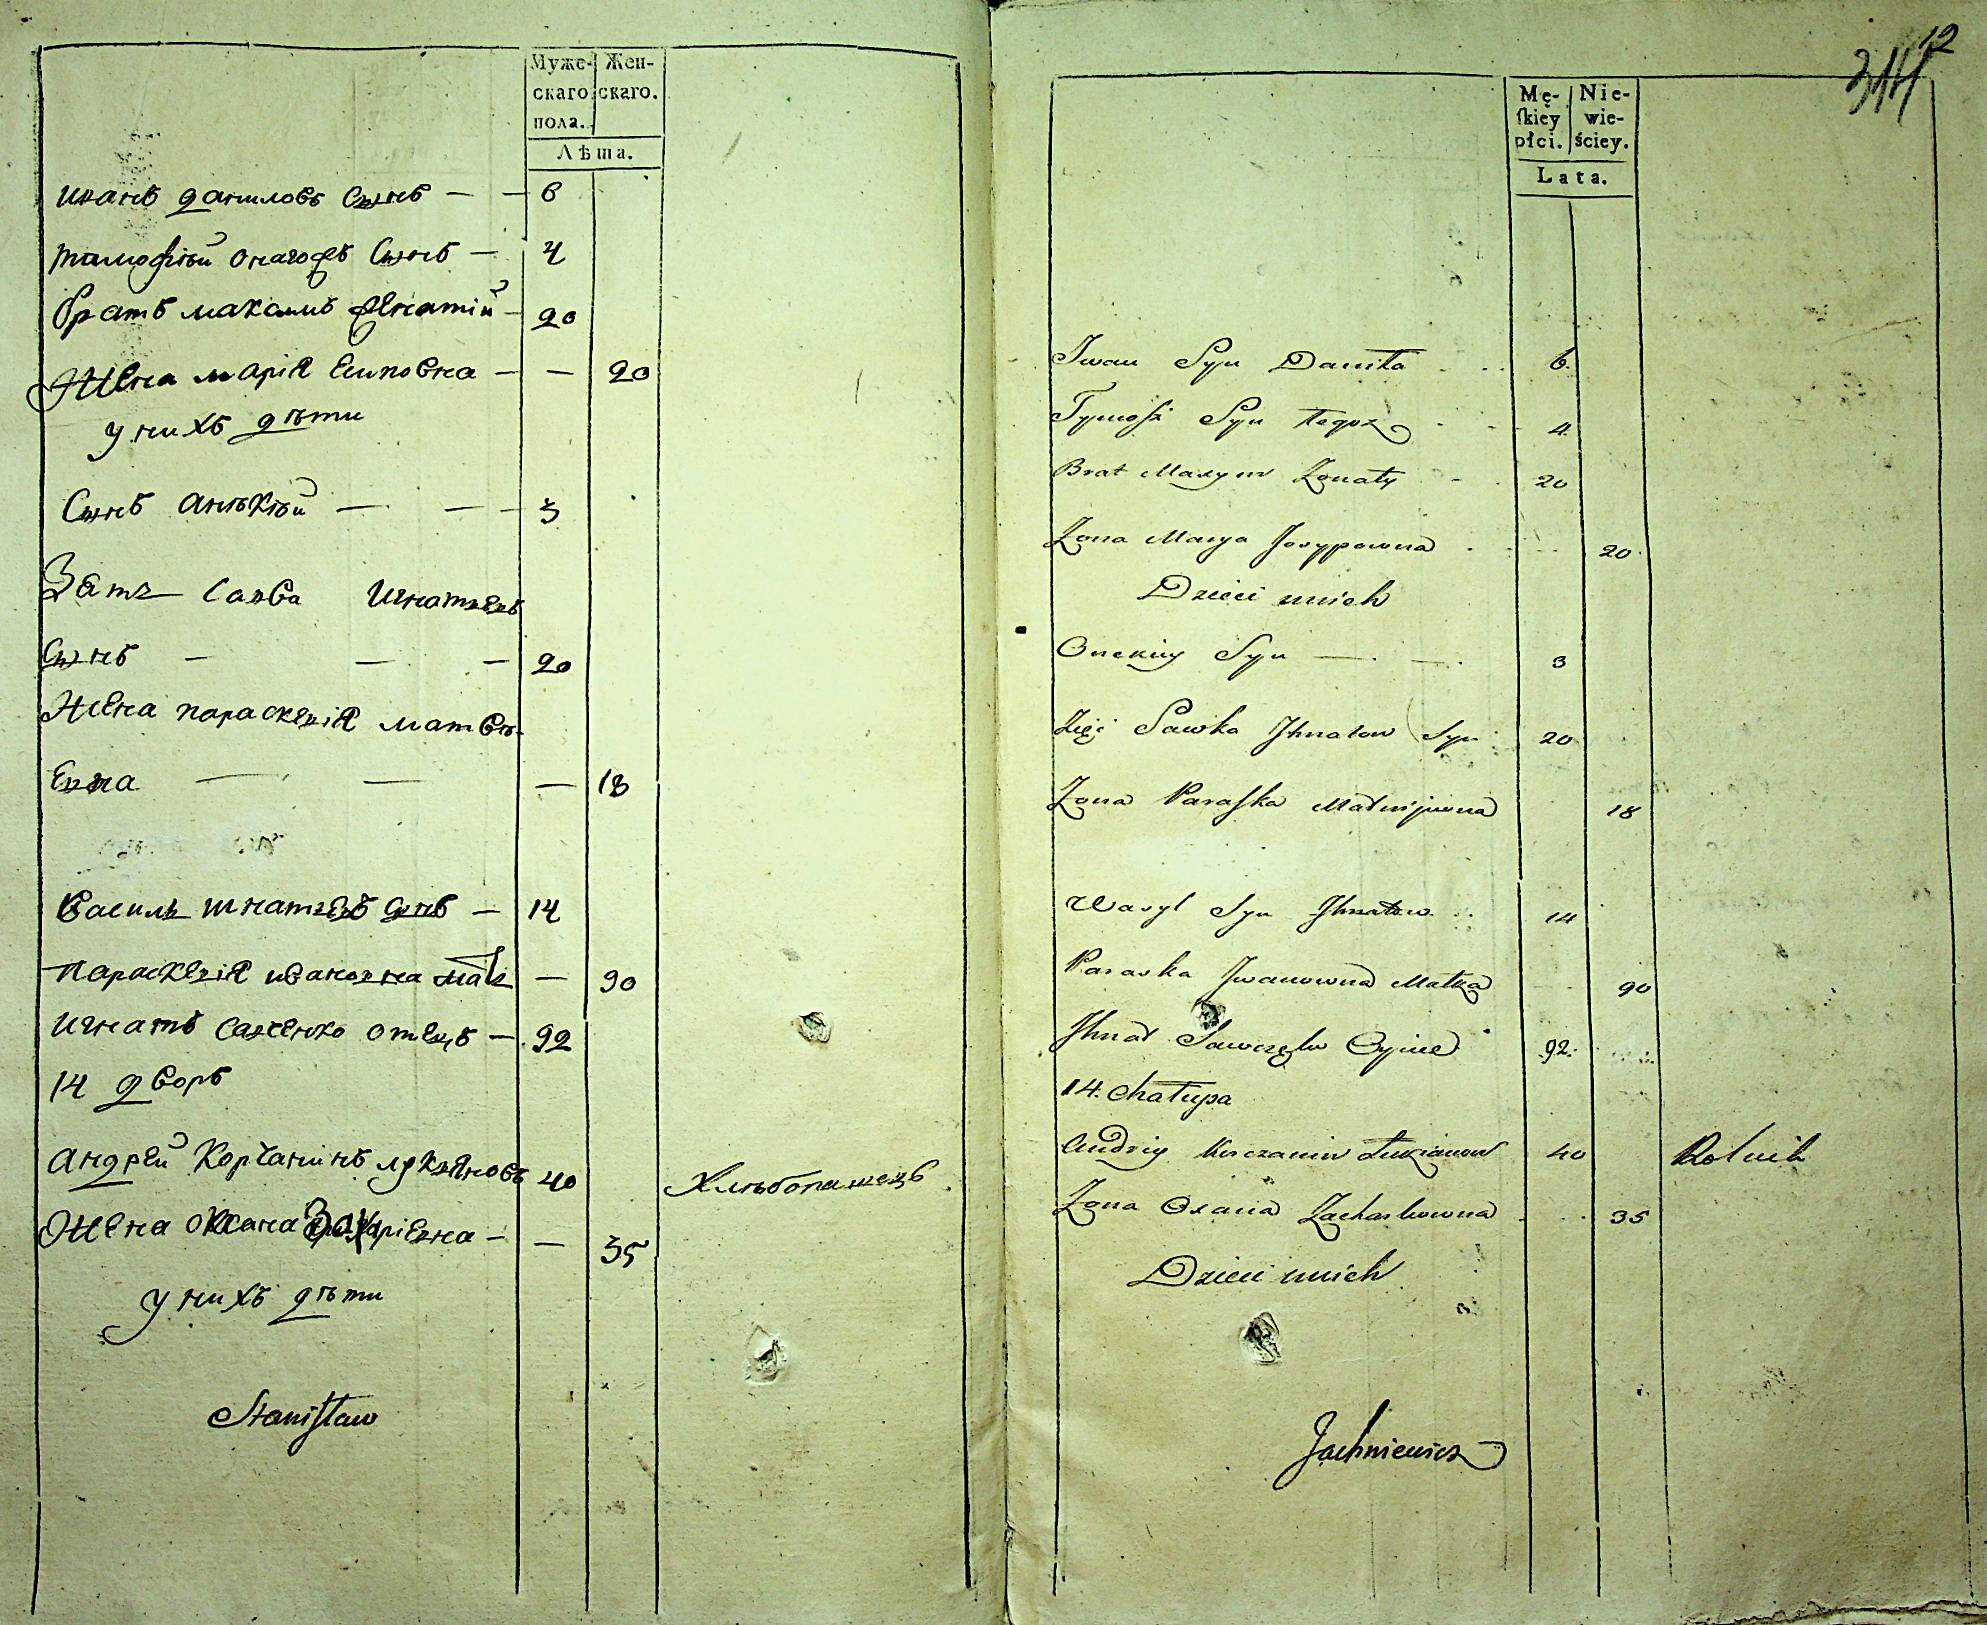 Муже- Жен-
скаго скаго.
пола.
Лѣта.
иванъ даниловъ Сынъ — — 6
тимофѣй онагофъ Сынъ — 4
братъ максимъ женатій — 20
Жена маріа Есиповна — — 20
у нихъ дѣти
Сынъ анѣкѣй — — — 3
Зять савва игнатьевъ
Сынъ — — — 20
Жена параскевіа матвѣ-
евна — — — 18
василь игнатьевъ сынъ — 14
параскевіа ивановна мать — 90
игнатъ савченко отецъ — 92
14 дворъ
андрей корчанинъ лукьяновъ 40 Хлѣбопашецъ
Жена оксана Захаріевна — — 35
у нихъ дѣти
Stanisław
12
314
Mę- Nie-
skiey wie-
płci. ściey.
Lata.
Iwan Syn Daniła 6.
Tymosz Syn tegoz 4.
Brat Maxym Zonaty 20
Zona Marya Josypowna 20.
Dzieci unich
Onekiy Syn — — 3
Zięć Sawka Jhnatow Syn 20
Zona Paraska Matwijuwna 18
Wasyl Syn Jhnatow 14
Paraska Jwanowna Matka 90
Jhnat Sawczęko Oyciec 92.
14. Chałupa
Andriy Korczanin Łukianow 40 Rolnik
Zona Oxana Zacharkowna 35
Dzieci unich
Jachniewicz